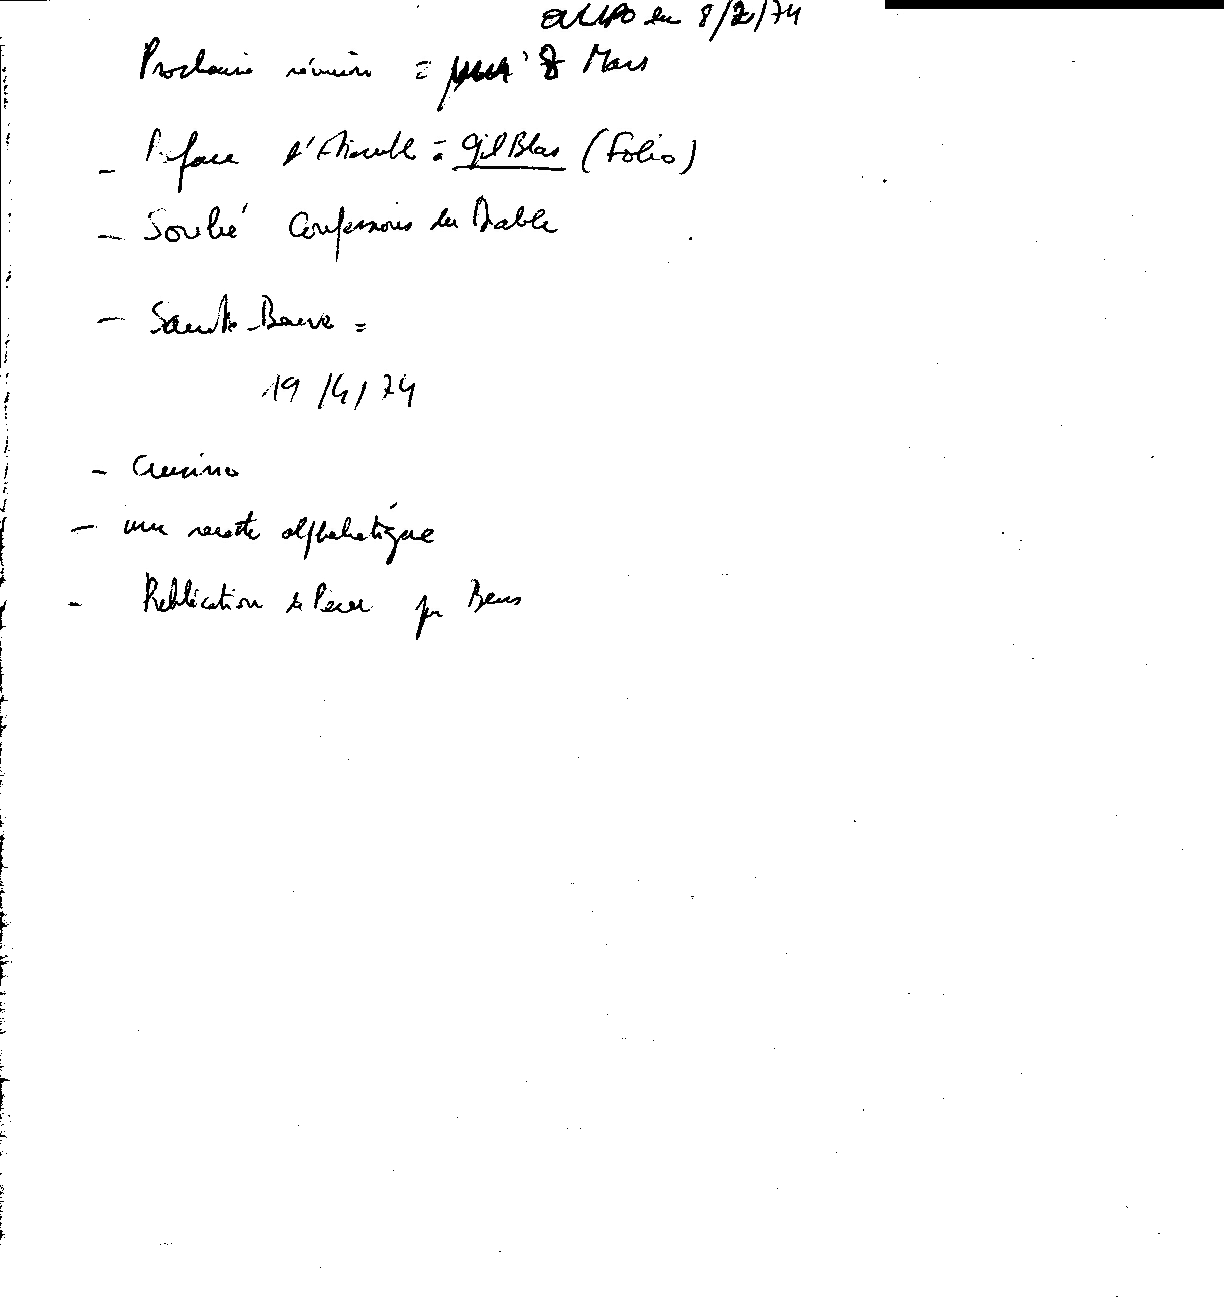 OULIPO du 8/2/74
Prochaine réunion = 8 Mars
- Préface d'Etiemble à Gil Blas (Folio)
- Soulié Confessions du Diable
- Sainte-Beuve =
19/4/74
- Crucino
- une recette alphabétique
- Publication de Perec par Bens